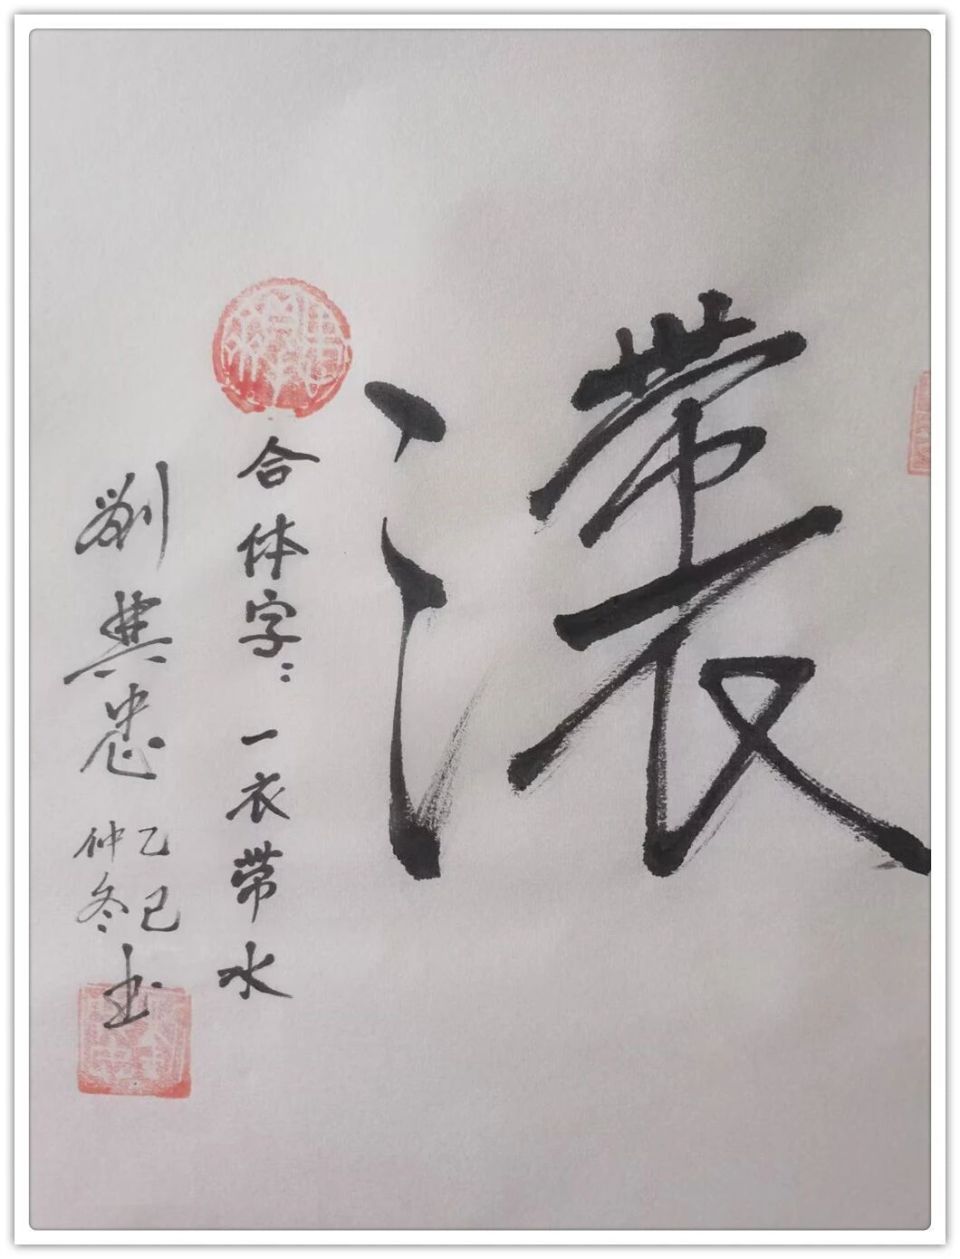 合体字：一衣带水
劉典忠
乙巳
仲冬
书